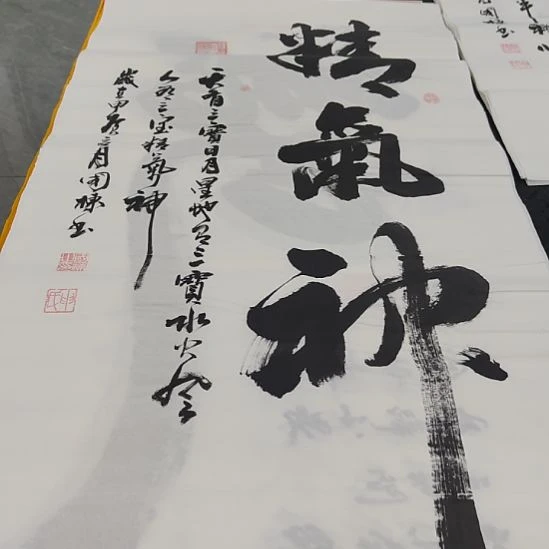 精氣神
天有三寶日月星地有三寶水火風
人有三寶精氣神
歲在甲辰三月書